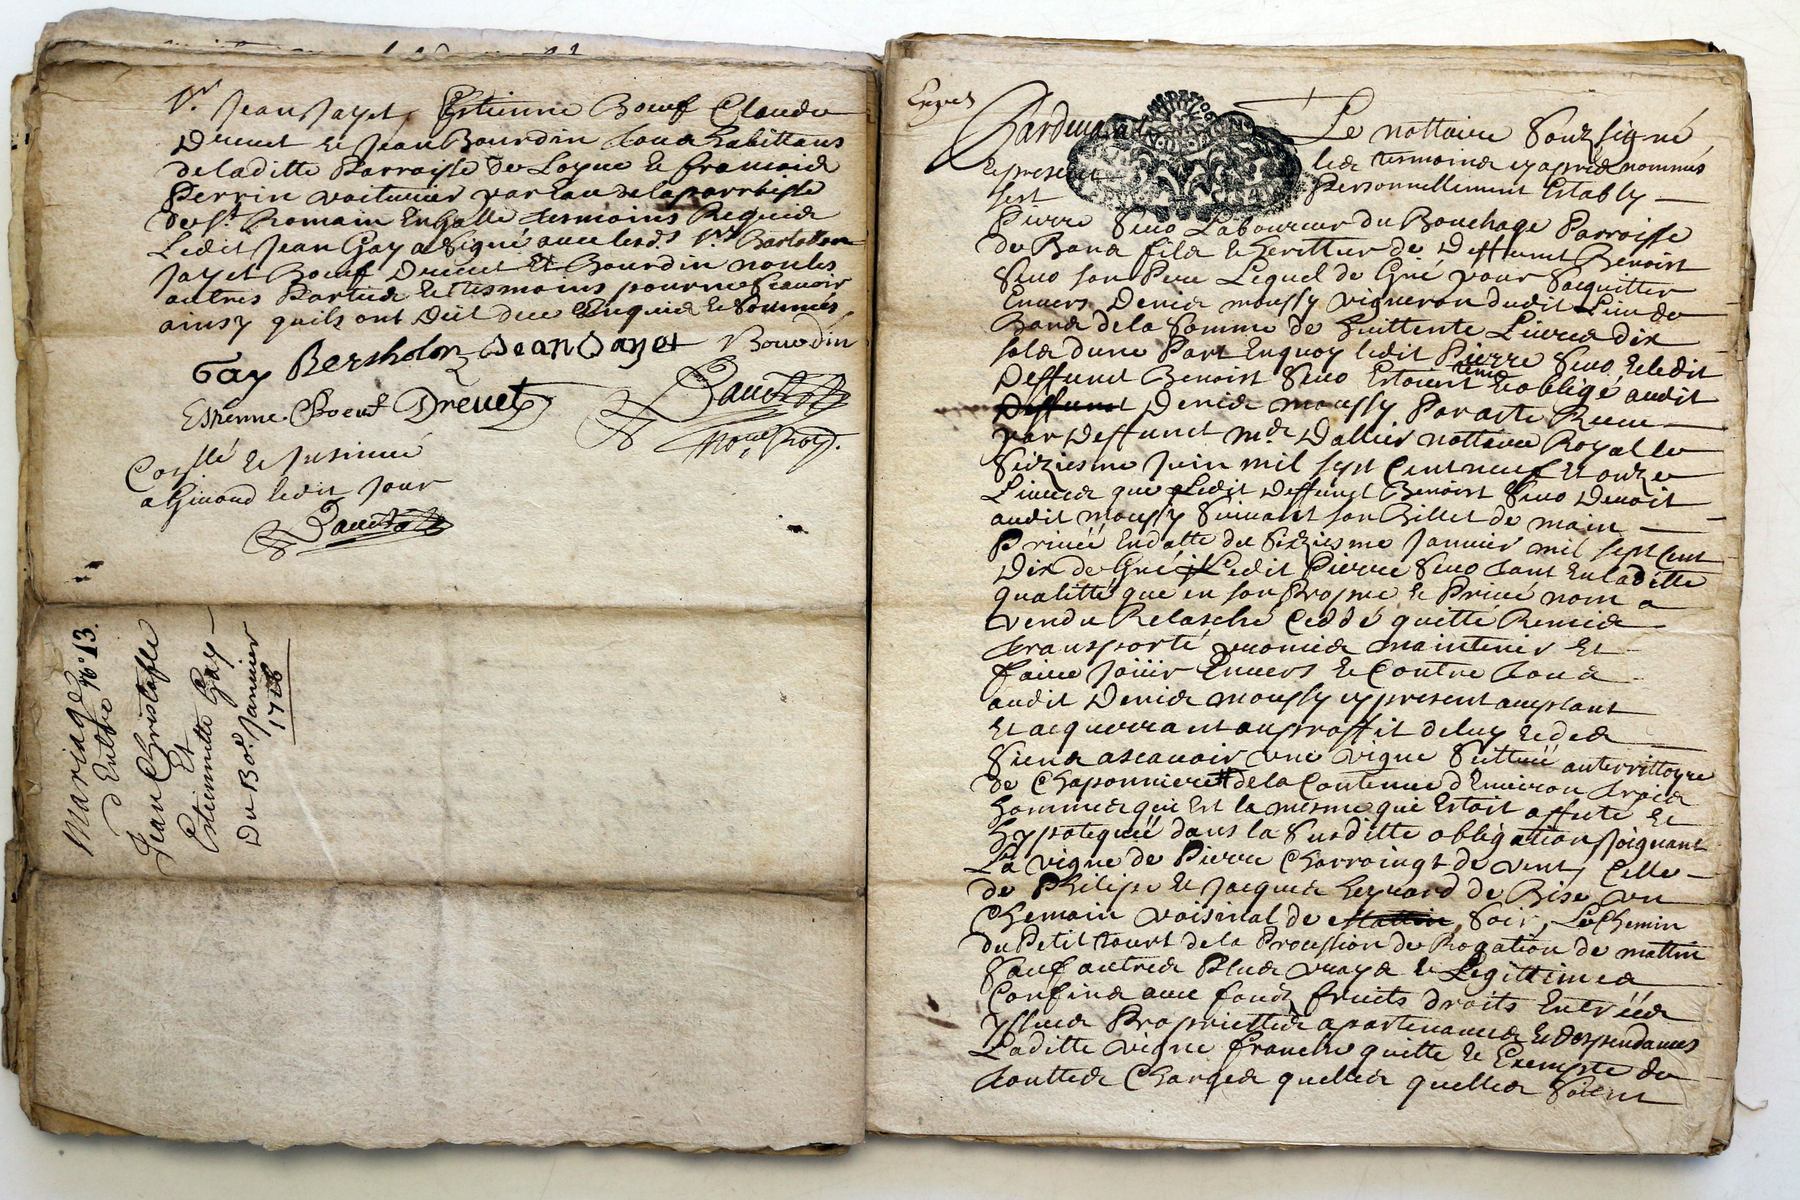 Sr. Jean Jayet, Estienne Boeuf Claude
Drevet et Jean Bourdin tous habittans
de laditte Parroisse de Loyne et francois
Perrin voiturier par Eau de la parroisse
de St. Romain Engalle tesmoins Requis
Ledit Jean Gay a signé avec lesds. Srs. Bartollon
Jayet Boeuf Drevet Et Bourdin non les
autres Parties et tesmoins pour ne scavoir
ainsy quils ont dit de ce Enquis et sommés
Gay Bersholon Jean Jayet Bourdin
Estienne Boeuf Drevet
Noire Roy.
Conllé et Insinué
a Givord ledit Jour
Mariage No 13.
d'Entre
Jean Christofle
Et
Estiennette Gay
Du 80e. Janvier
1718
Pardevant Le nottaire soussigné
et present les tesmoins cy apres nommés
fust Personnellement Estably
Pierre Seno Laboureur du Bouchage Parroisse
de Bans fils et heritier de Deffunct Benoist
Seno son Pere Lequel de Gré pour sacquitter
Envers Denis moussy vigneron dudit Lieu de
Bans de la somme de huittente Livres dix
sols dune Part Enquoy ledit Pierre Seno, et ledit
Deffunct Benoist Seno Estoient tenus et obligé audit
Deffunct Denis moussy Par acte Receu
par Deffunct me. Dallier nottaire Royal le
seiziesme Juin mil sept Cent neuf Et onze
Livres que Ledit Deffunct Benoist Seno Devoit
audit moussy suivant son Billet de main
Privée Endatte du seiziesme Janvier mil sept Cent
dix de Gré Ledit Pierre Seno tant En laditte
qualitté que en son Propre et Privé nom a
vendu Relasché Ceddé quitté Remis
transporté promis maintenir Et
faire Joüir Envers et Contre tous
audit Denis moussy cy present acceptant
Et acquerrant au proffit de luy et des
siens ascavoir une vigne scittuée au territtoyre
de Chaponniere de la Contenue d'Environ trois
hommées qui Est la mesme qui Estoit affecte Et
hypotequée dans la susditte obligation Joignant
La vigne de Pierre Charroingt de vent, Celle
de Philipe et Jacques heynard de Bise un
Chemain voisinal de Mattin, soir, Le Chemin
du Petit tourt de la Procession de Rogation de mattin
sauf autres Plus vrays et Legittimes
Confins avec fonds fruits droits Entréés
yssues Propriettés apartenances et despendances
Laditte vigne franche quitte et Exempte de
touttes Charges quelles quelles soient